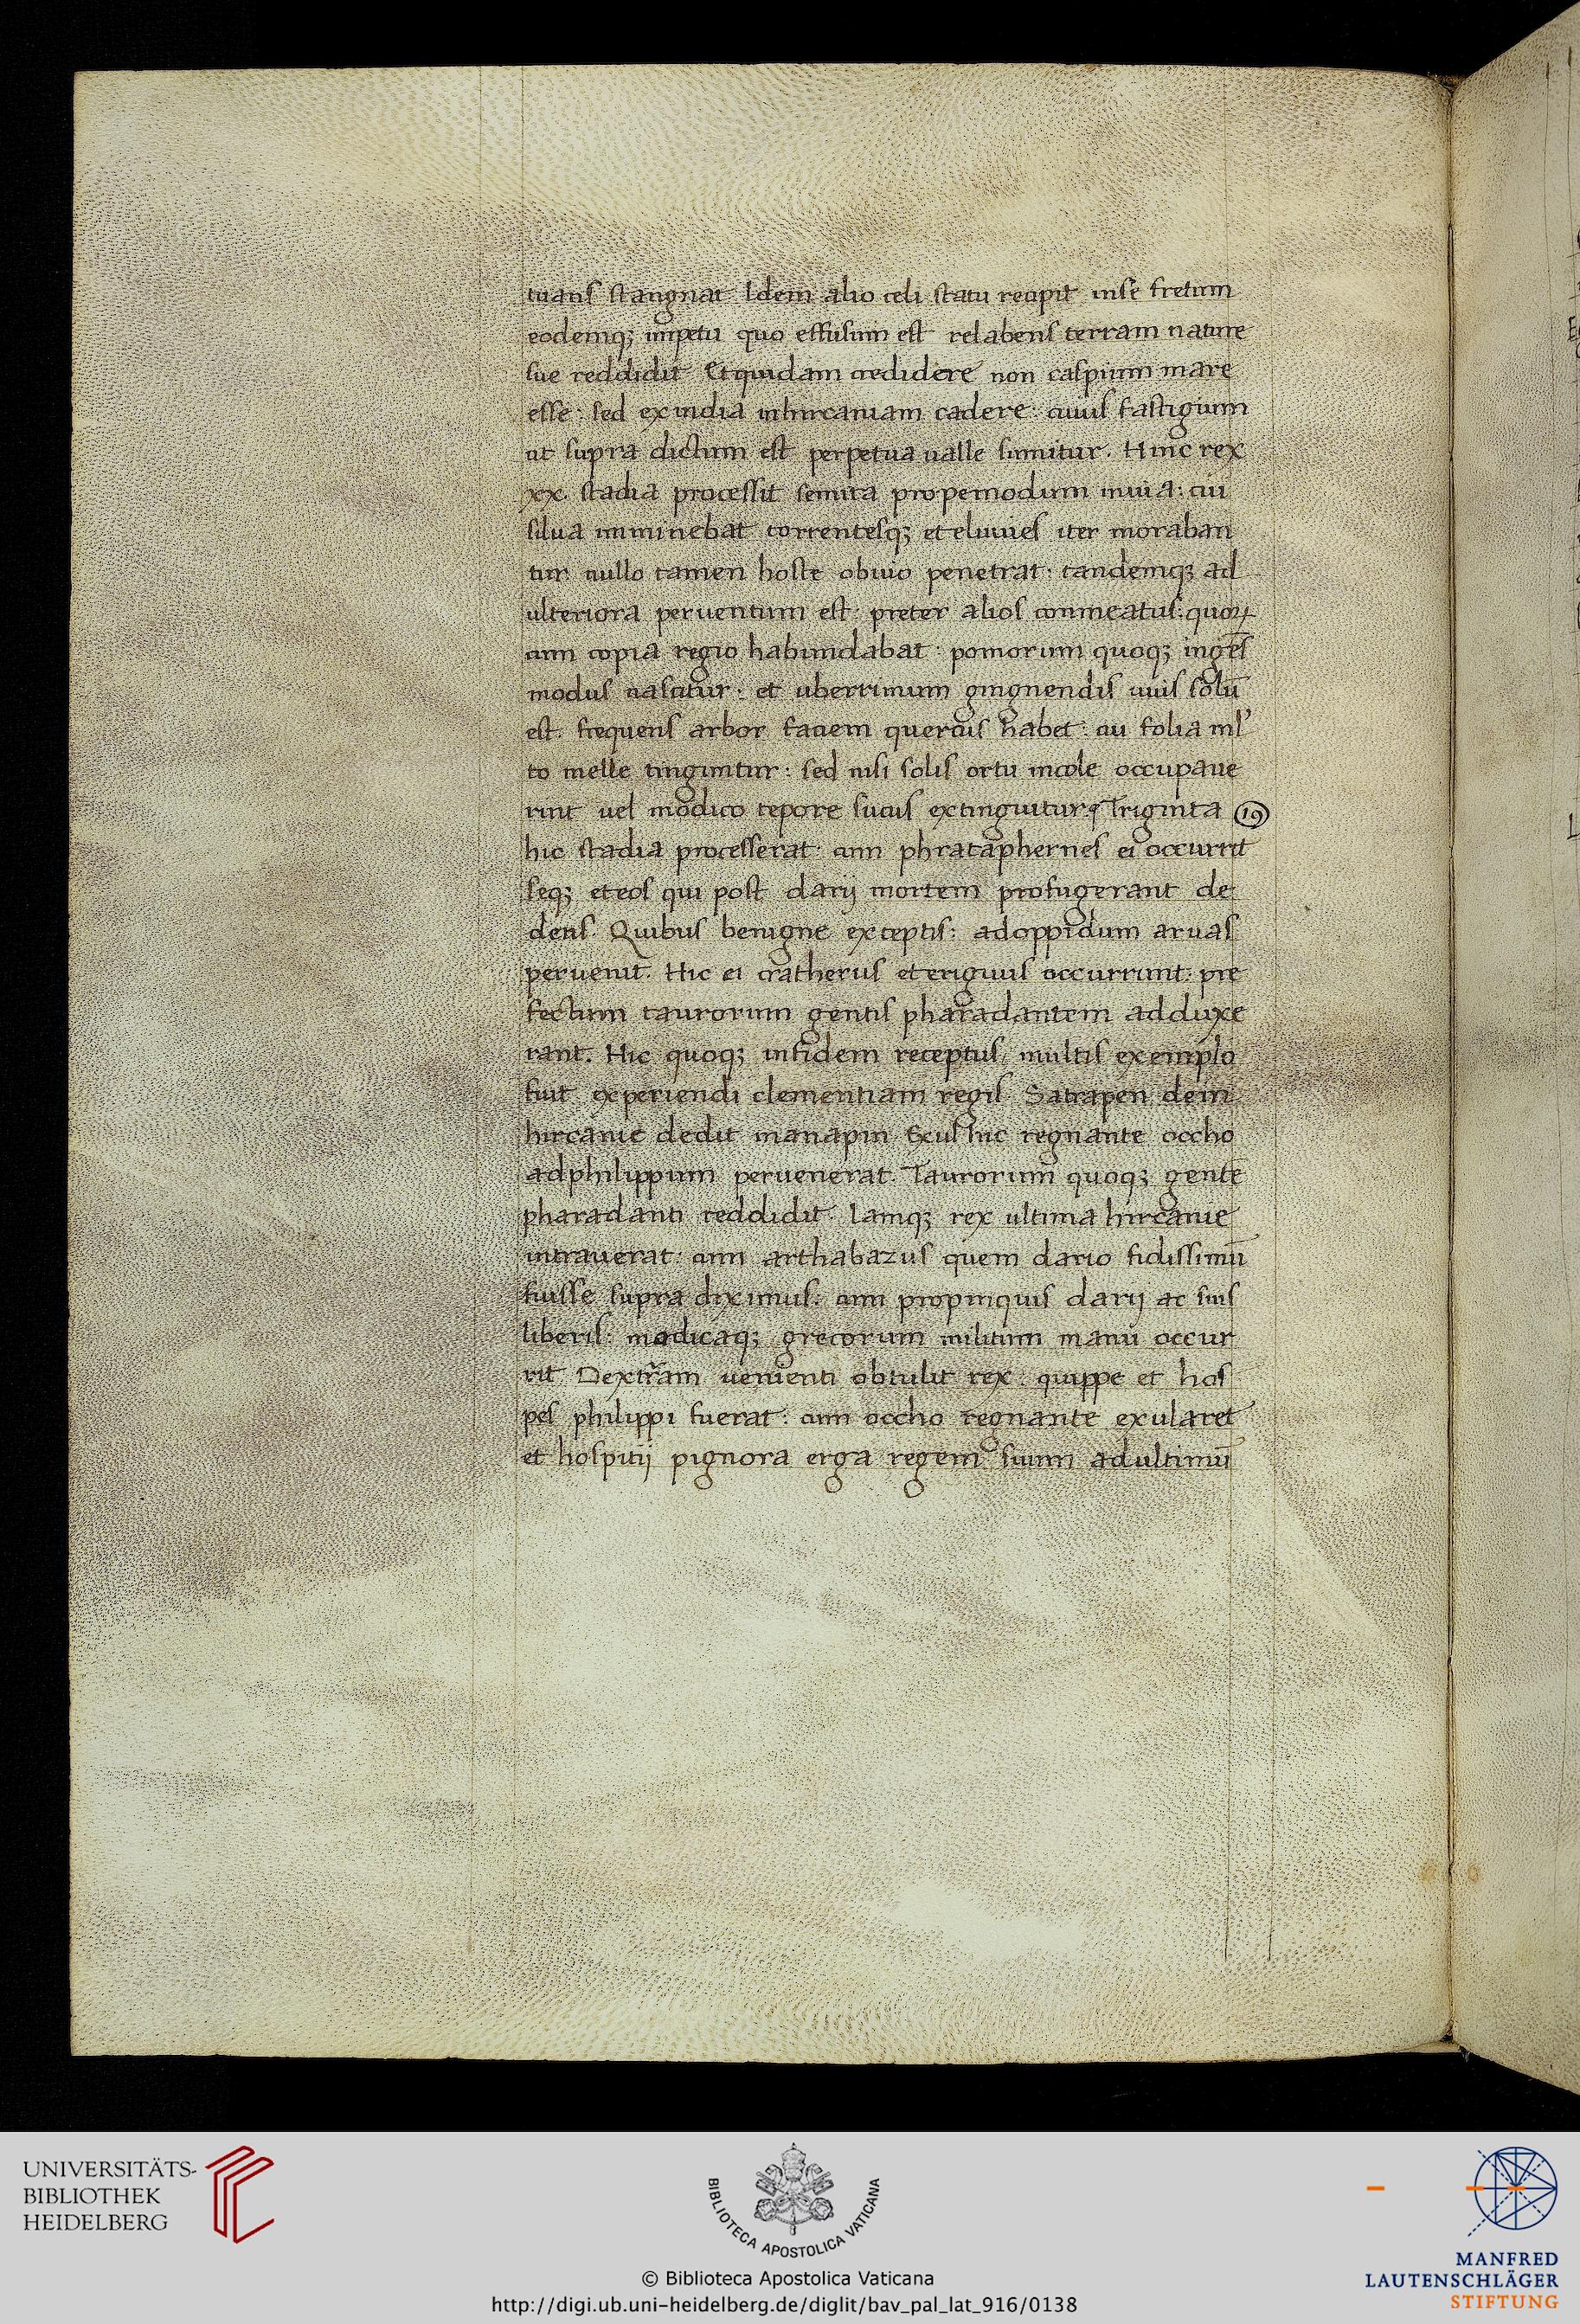 tuans stangnat. Idem alio celi statu recipit inse fretum
eodemq; impetu quo effusum est relabens terram nature
sue reddidit. Et quidam credidere non caspium mare
esse: sed ex india inhircaniam cadere: cuius fastigium
ut supra dictum est perpetua ualle sumitur. Hinc rex
xx. stadia processit semita propemodum inuia: cui
silua imminebat torrentesq; et eluuies iter moraban
tur. nullo tamen hoste obuio penetrat: tandemq; ad
ulteriora peruentum est. preter alios commeatus: quoꝝ
cum copia regio habundabat: pomorum quoq; ingēs
modus nascitur: et uberrimum gingnendis uuis solū
est. frequens arbor faciem quercus habet: cui folia ml'
to melle tinguntur: sed nisi solis ortu incole occupaue
rint uel modico tepore sucus extinguitur. Triginta 19
hic stadia processerat: cum phrataphernes ei occurrit
seq; et eos qui post darij mortem profugerant de
dens. Quibus benigne exceptis: adoppidum aruas
peruenit. Hic ei cratherus et eriguus occurrunt: pre
fectum taurorum gentis pharadantem adduxe
rant. Hic quoq; infidem receptus multis exemplo
fuit experiendi clementiam regis. Satrapen dein
hircanie dedit manapin. Exul hic regnante occho
adphilippum peruenerat. Taurorum quoq; gentē
pharadanti reddidit. Iamq; rex ultima hircanie
intrauerat: cum arthabazus quem dario fidissimū
fuisse supra diximus: cum propinquis darij ac suis
liberis: modicaq; grecorum militum manu occur
rit. Dextram uenienti obtulit rex: quippe et hos
pes philippi fuerat: cum occho regnante exularet
et hospitij pignora erga regem suum adultimū
UNIVERSITÄTS-
BIBLIOTHEK
HEIDELBERG
BIBLIOTECA APOSTOLICA VATICANA
© Biblioteca Apostolica Vaticana
http://digi.ub.uni-heidelberg.de/diglit/bav_pal_lat_916/0138
MANFRED
LAUTENSCHLÄGER
STIFTUNG